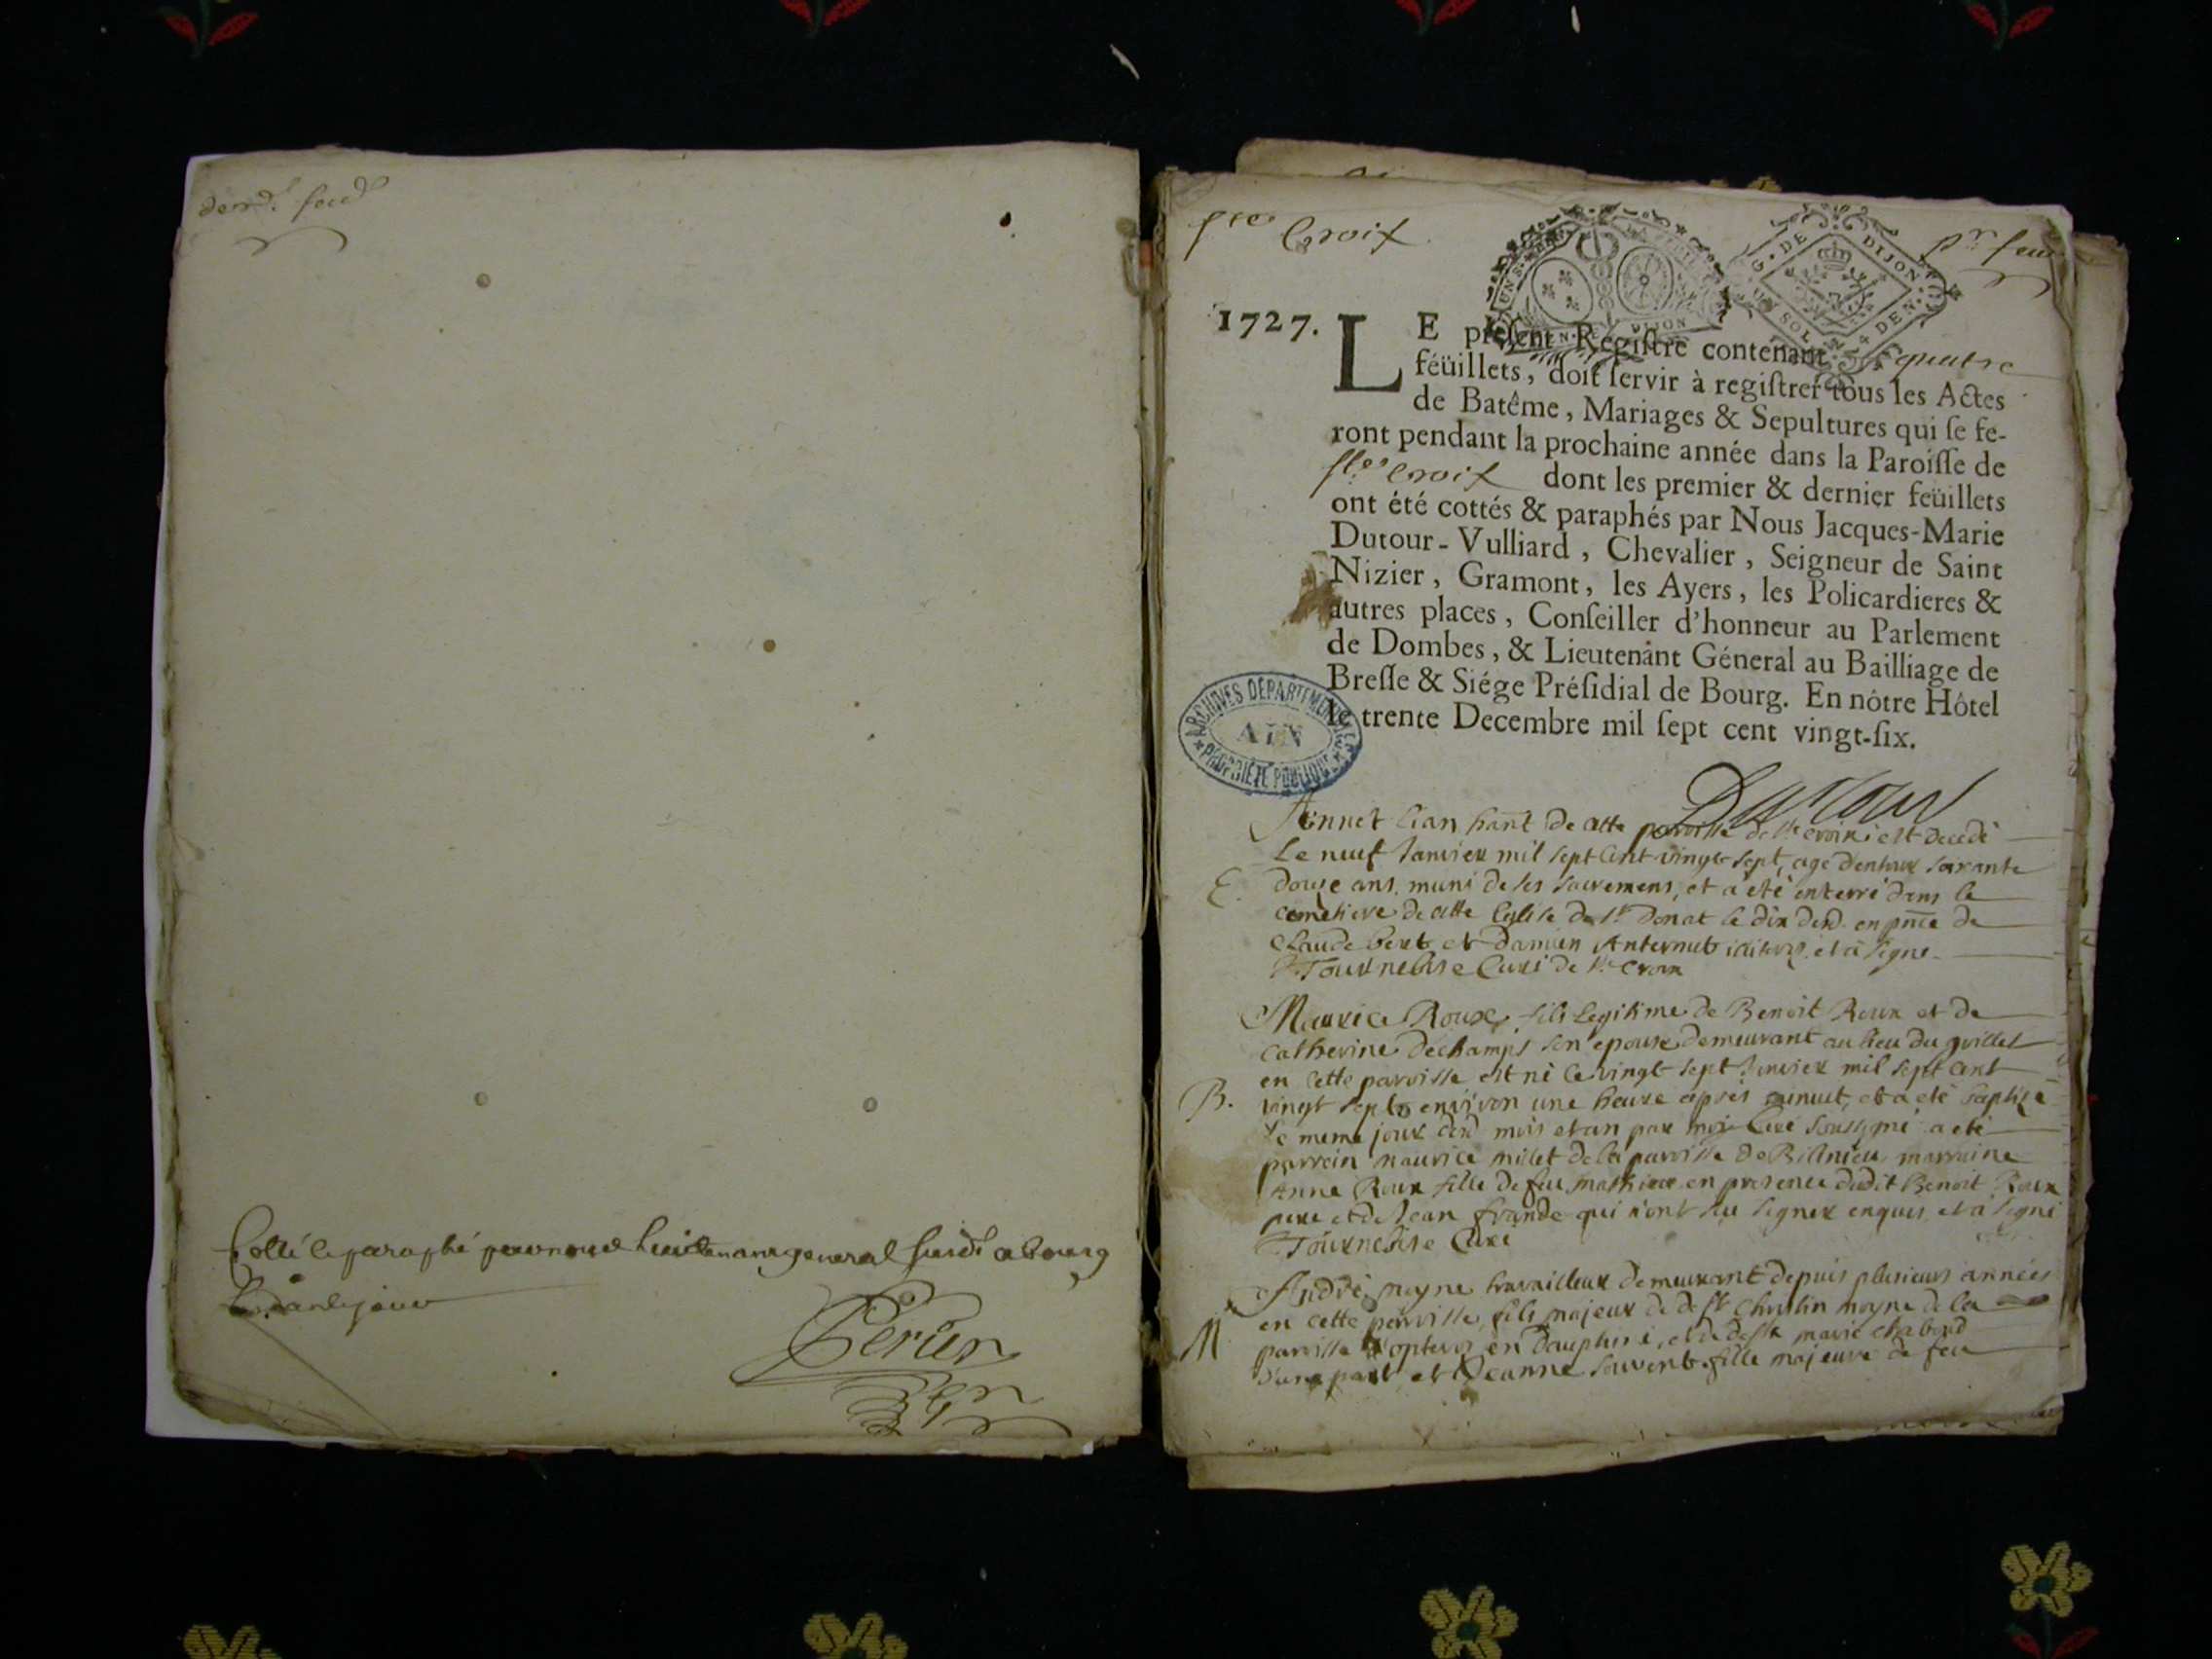 Cotté et paraphé par nous Lieutenant general susd. a bourg
Perier
Ste. Croix
pr. feu
G. DE DIJON
UN SOL
DEN.
1727.
LE preſent Regiſtre contenant quatre
féüillets, doit ſervir à regiſtrer tous les Actes
de Batême, Mariages & Sepultures qui ſe fe-
ront pendant la prochaine année dans la Paroiſſe de
Ste. Croix dont les premier & dernier feüillets
ont été cottés & paraphés par Nous Jacques-Marie
Dutour-Vulliard, Chevalier, Seigneur de Saint
Nizier, Gramont, les Ayers, les Policardieres &
autres places, Conſeiller d'honneur au Parlement
de Dombes, & Lieutenant Géneral au Bailliage de
Breſſe & Siége Préſidial de Bourg. En nôtre Hôtel
le trente Decembre mil ſept cent vingt-ſix.
ARCHIVES DÉPARTEMENTALES
AIN
PROPRIÉTÉ PUBLIQUE
Dutour
de cette paroisse de Ste croix est decedé
Le neuf Janvier mil sept cent vingt sept, agé d'entour soixante
E. douze ans, muni de ses sacremens, et a été enterré dans le
cemetiere de cette Eglise de St Donat le dix dud. en pnce de
Claude bert et Damien Anternut et a signé
Tournebise Curé de Ste Croix
Maurice Roux, fils legitime de Benoit Roux et de
Catherine Dechamps son epouse demeurant au lieu du
en cette paroisse est né le vingt sept Janvier mil sept cent
B. vingt sept environ une heure après minuit, et a eté baptizé
le meme jour dud mois et an par moi Curé soussigné a eté
parrein maurice millet de la paroisse de marraine
Anne Roux fille de feu mathieu en presence dudit Benoit Roux
pere et de Jean frande qui n'ont sçu signer enquis, et a signé
Tournebise Curé
André moyne travailleur demeurant depuis plusieurs années
en cette paroisse, fils majeur de moyne de la
M paroisse d'optevos en Dauphiné, et de marie chabod
d'une part, et Jeanne souvent fille majeure de feu